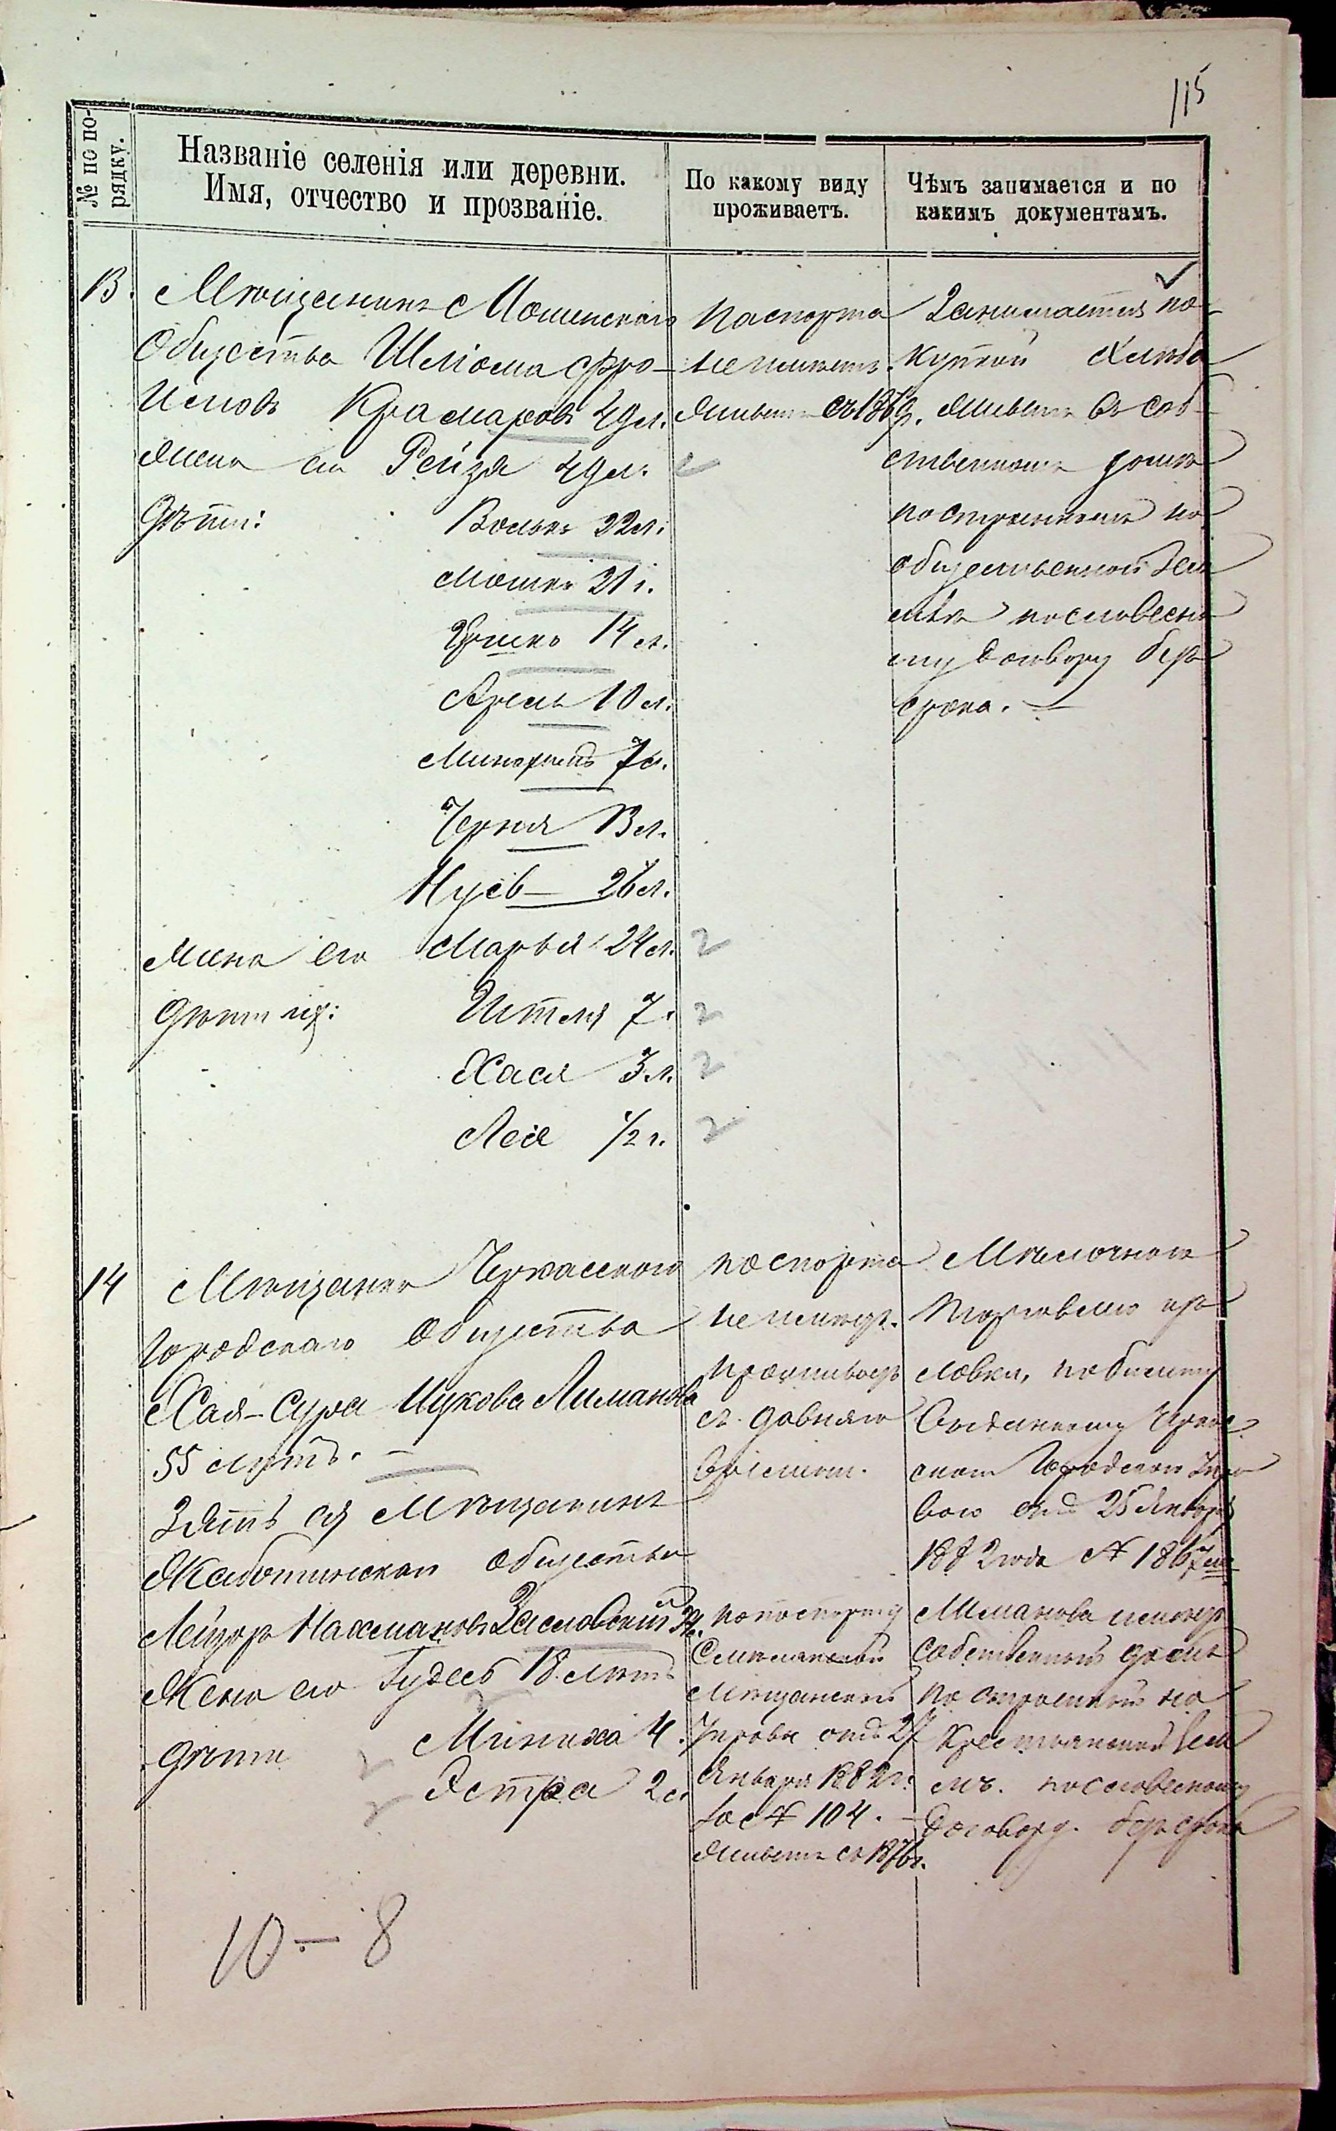 115
№ по по-
рядку.
Названіе селенія или деревни.
Имя, отчество и прозваніе.
По какому виду
проживаетъ.
Чѣмъ занимается и по
какимъ документамъ.
13. Мѣщанинъ Мошенскаго
Общества Шліома Фро-
имовъ Крамаровъ 49 л.
жена его Рейзя 49 л.
Дѣти:
Волько 22 л.
Мошко 21 г.
Іосько 14 л.
Арель 10 л.
7 л.
Черня 13 л.
Нусь — 26 л.
жена его Марья 24 л.
дѣти ихъ: Ителя 7.
Хася 3 л.
Лея 1/2 г.
Паспорта
не имѣетъ.
Живетъ съ
Занимается по-
купкой хлѣба
живетъ въ соб-
ственномъ домѣ
построенномъ на
общественной зем
лѣ по словесно
му договору безъ
срока. —
14 Мѣщанка Черкасскаго
городскаго Общества
Хая-Сура Ицкова Лиманова
55 лѣтъ. —
Зять ея Мѣщанинъ
Жаботинскаго общества
Лейзоръ Нахмановъ Заславскій
Жена его Гудесь 18 лѣтъ
дѣти
Миниха 4.
Эстра 2 л.
паспорта
не имѣетъ.
проживаетъ
съ давняго
времени.
по паспорту
Смѣлянской
Мѣщанской
Управы отъ 27
Января 1882 г.
за № 104. —
Живетъ съ 1876 г.
Мѣлочною
торговлею
по билету
выданному Черкас
ской Городской Упра
вою отъ 25 Января
1882 года №
Лиманова имѣетъ
собственный домъ
построенный на
Крестьянской зем
лѣ. по словесному
договору. безъ срока
10 — 8